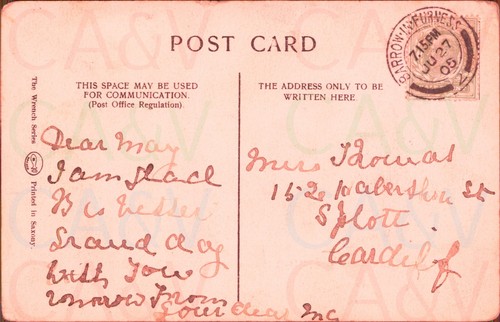 POST CARD
BARROW-IN-FURNESS
7.15PM
JU 27
05
The Wrench Series
Printed in Saxony.
THIS SPACE MAY BE USED
FOR COMMUNICATION.
(Post Office Regulation).
Dear May
I am glad
B is better
Grand day
with you
tomorrow From
your dear
THE ADDRESS ONLY TO BE
WRITTEN HERE.
Miss Thomas
152 Habershon St
Splott
Cardiff
CA&V